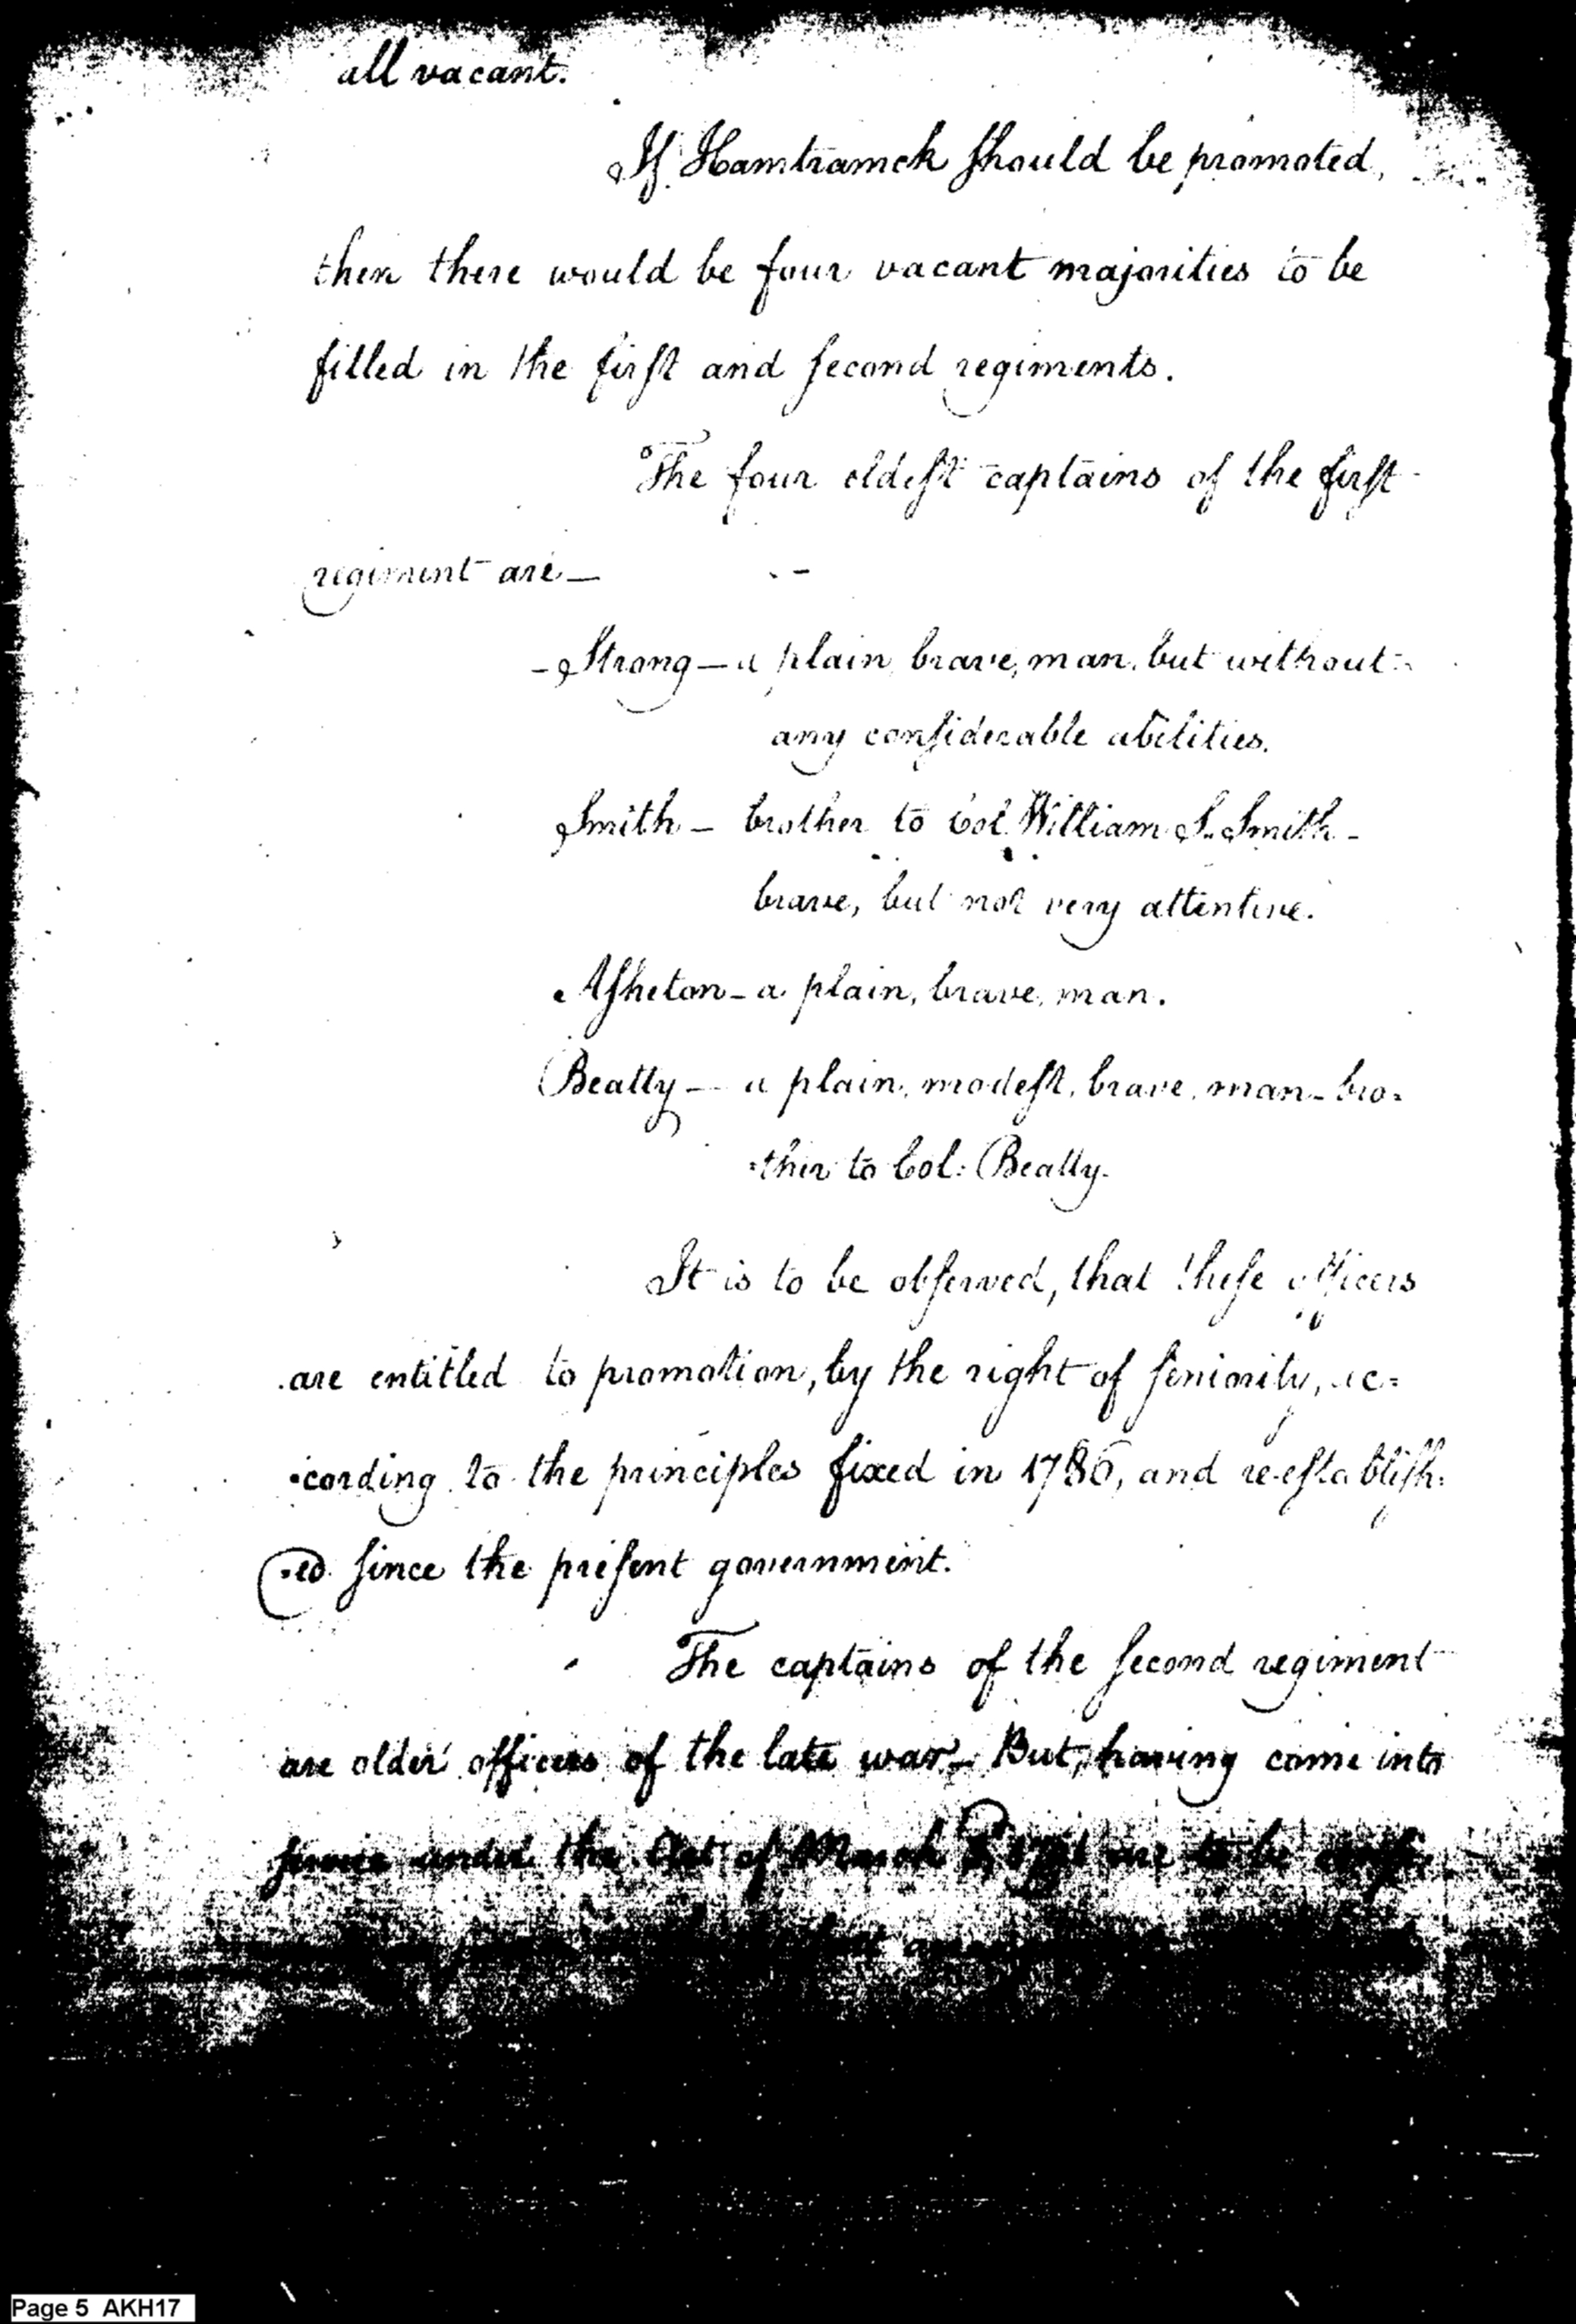 all vacant.
If Hamtramck should be promoted,
then there would be four vacant majorities to be
filled in the first and second regiments.
The four oldest captains of the first
regiment are—
- Strong — a plain, brave, man, but without
any considerable abilities.
Smith — brother to Col. William S. Smith —
brave, but not very attentive.
Asheton — a plain, brave, man.
Beatty — a plain, modest, brave, man — bro=
=ther to Col: Beatty.
It is to be observed, that these officers
are entitled to promotion, by the right of seniority, ac=
=cording to the principles fixed in 1786, and re-establish=
=ed since the present government.
The captains of the second regiment
are older officers of the late war — But, having come into
service under the Act of March 3, 1791 are to be
Page 5 AKH17